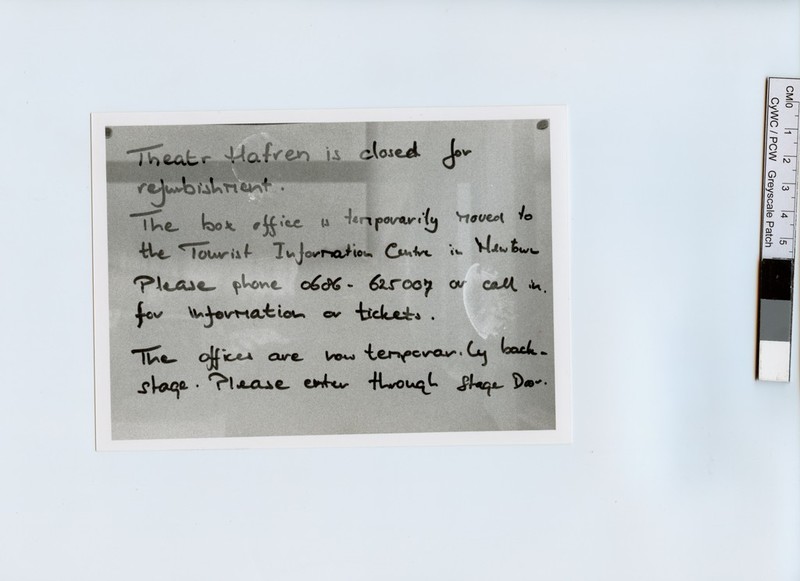 Theatr Hafren is closed for
refurbishment.
The box office is temporarily moved to
the Tourist Information Centre in Newtown
Please phone 0686 - 625007 or call in.
for information or tickets.
The offices are now temporarily back-
stage. Please enter through Stage Door.
CM 0 1 2 3 4 5
CyWC / PCW Greyscale Patch